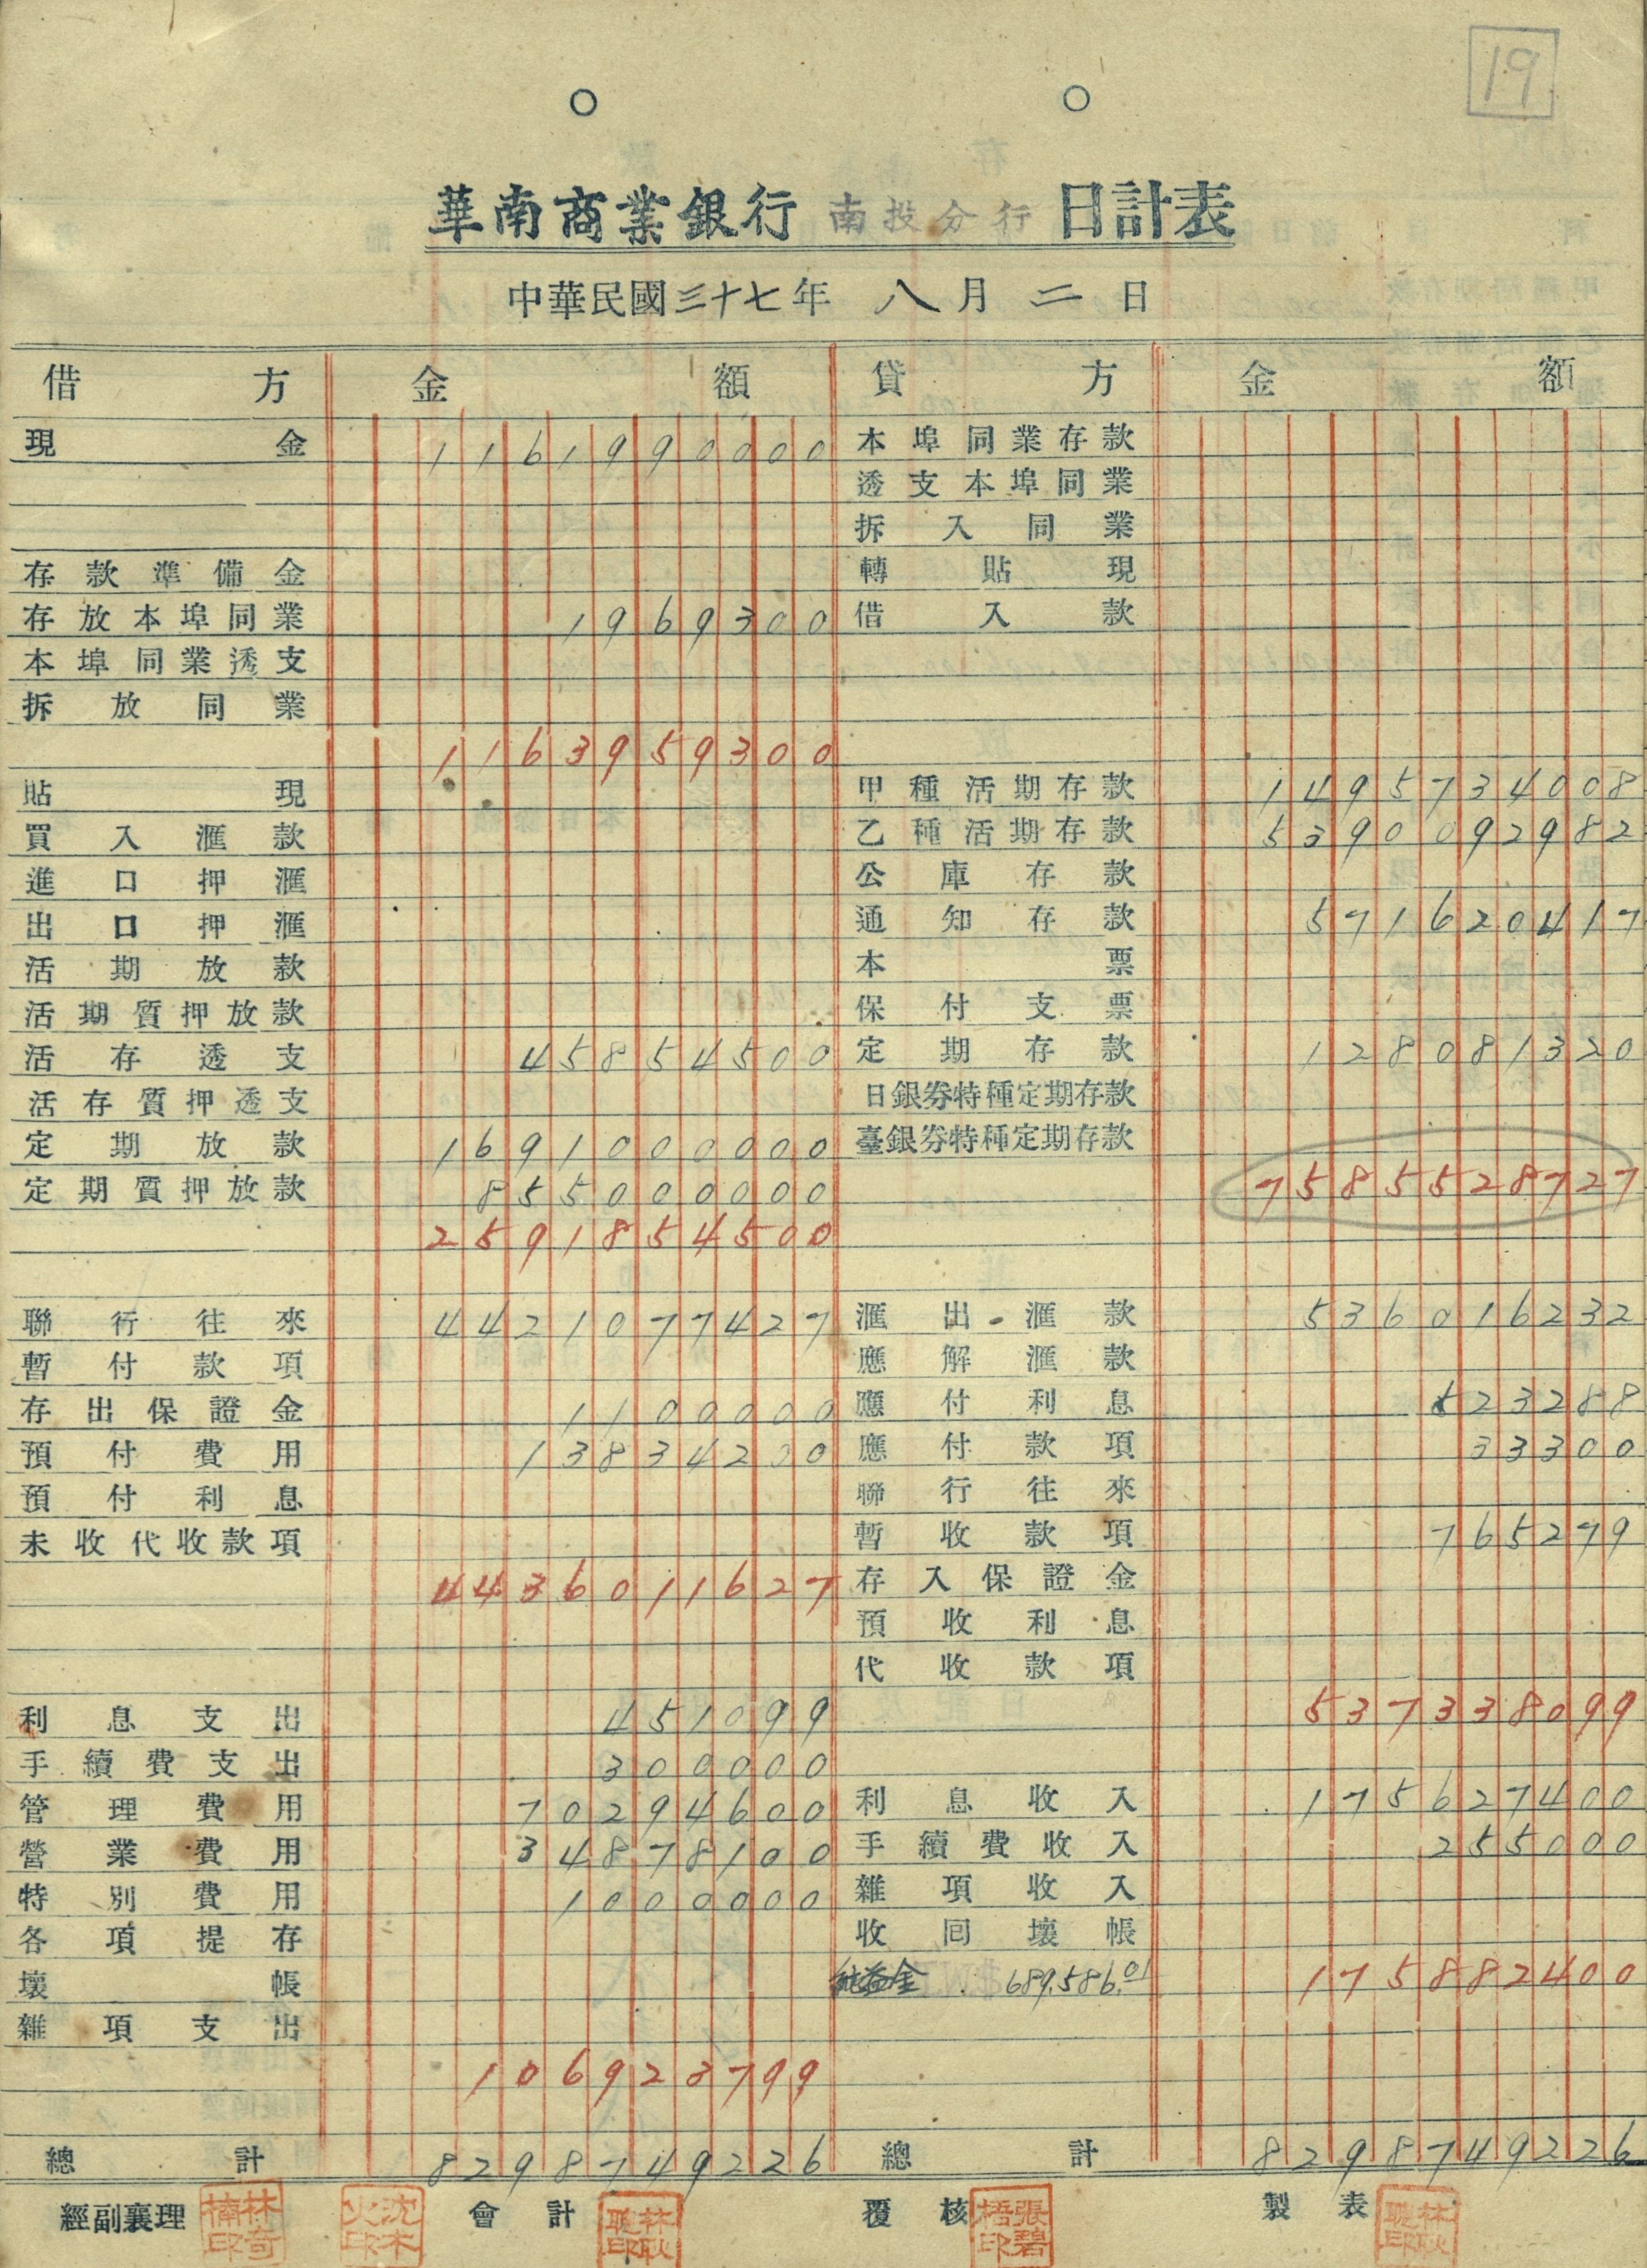 19
華南商業銀行 南投分行 日計表
中華民國三十七年 八月 二日
借方 金額 貸方 金額
現金 1161990000 本埠同業存款
透支本埠同業
拆入同業
存款準備金 轉貼現
存放本埠同業 1969300 借入款
本埠同業透支
拆放同業
1163959300
貼現 甲種活期存款 1495734008
買入滙款 乙種活期存款 5390092982
進口押滙 公庫存款
出口押滙 通知存款 571620417
活期放款 本票
活期質押放款 保付支票
活存透支 45854500 定期存款 128081320
活存質押透支 日銀券特種定期存款
定期放款 1691000000 臺銀券特種定期存款
定期質押放款 855000000 7585528727
2591854500
聯行往來 4421077427 滙出滙款 536016232
暫付款項 應解滙款
存出保證金 1100000 應付利息 523288
預付費用 13834200 應付款項 33300
預付利息 聯行往來
未收代收款項 暫收款項 765279
4436011627 存入保證金
預收利息
代收款項
利息支出 451099 537338099
手續費支出 300000
管理費用 70294600 利息收入 175627400
營業費用 34878100 手續費收入 255000
特別費用 1000000 雜項收入
各項提存 收回壞帳
壞帳 純益金 689,586.01 175882400
雜項支出
106923799
總計 8298749226 總計 8298749226
經副襄理 林奇楠印 沈木火印 會計 林耿聰印 覆核 張碧梧印 製表 林耿聰印